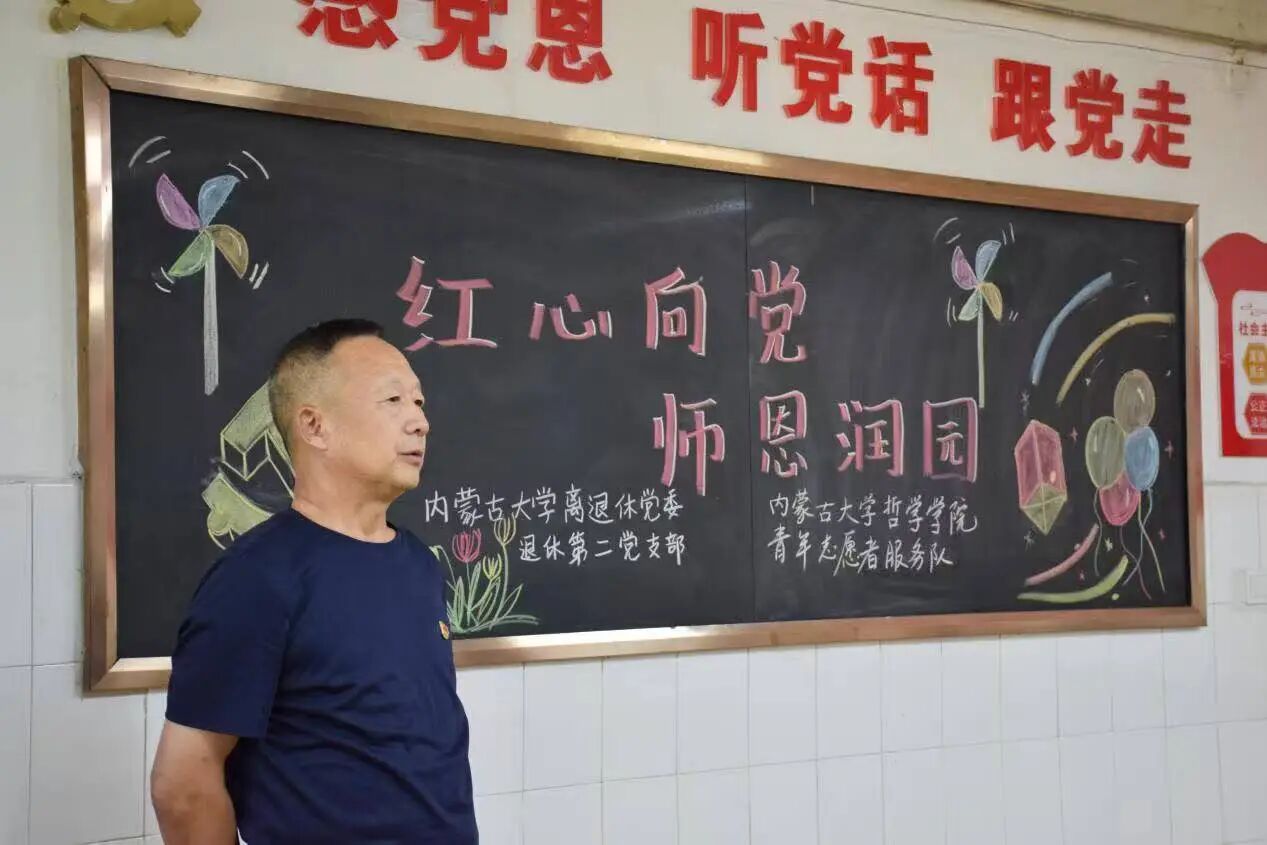 感党恩 听党话 跟党走
红心向党
师恩润园
内蒙古大学离退休党委
退休第二党支部
内蒙古大学哲学学院
青年志愿者服务队
社会主